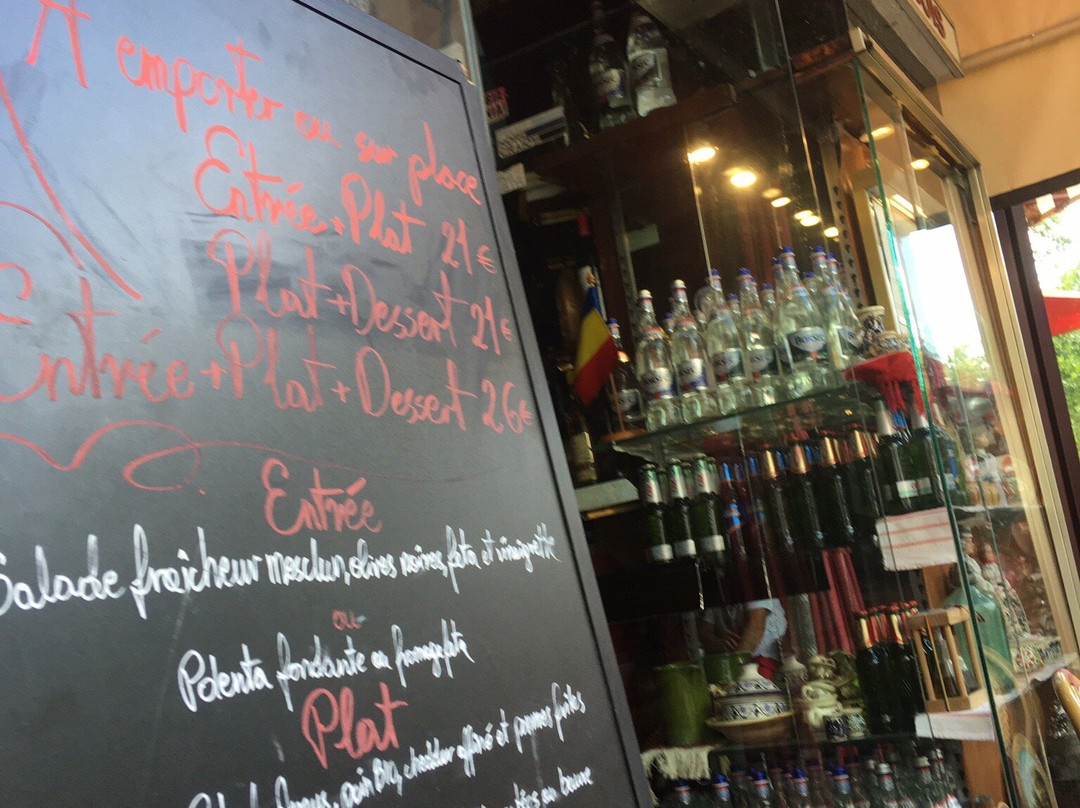 A emporter ou sur place
Entrée + Plat 21€
Plat + Dessert 21€
Entrée + Plat + Dessert 26€
Entrée
Salade fraîcheur mesclun, olives noires, feta et vinaigrette
ou
Polenta fondante au fromage feta
Plat
pain BIO, cheddar affiné et pommes frites
en bonne